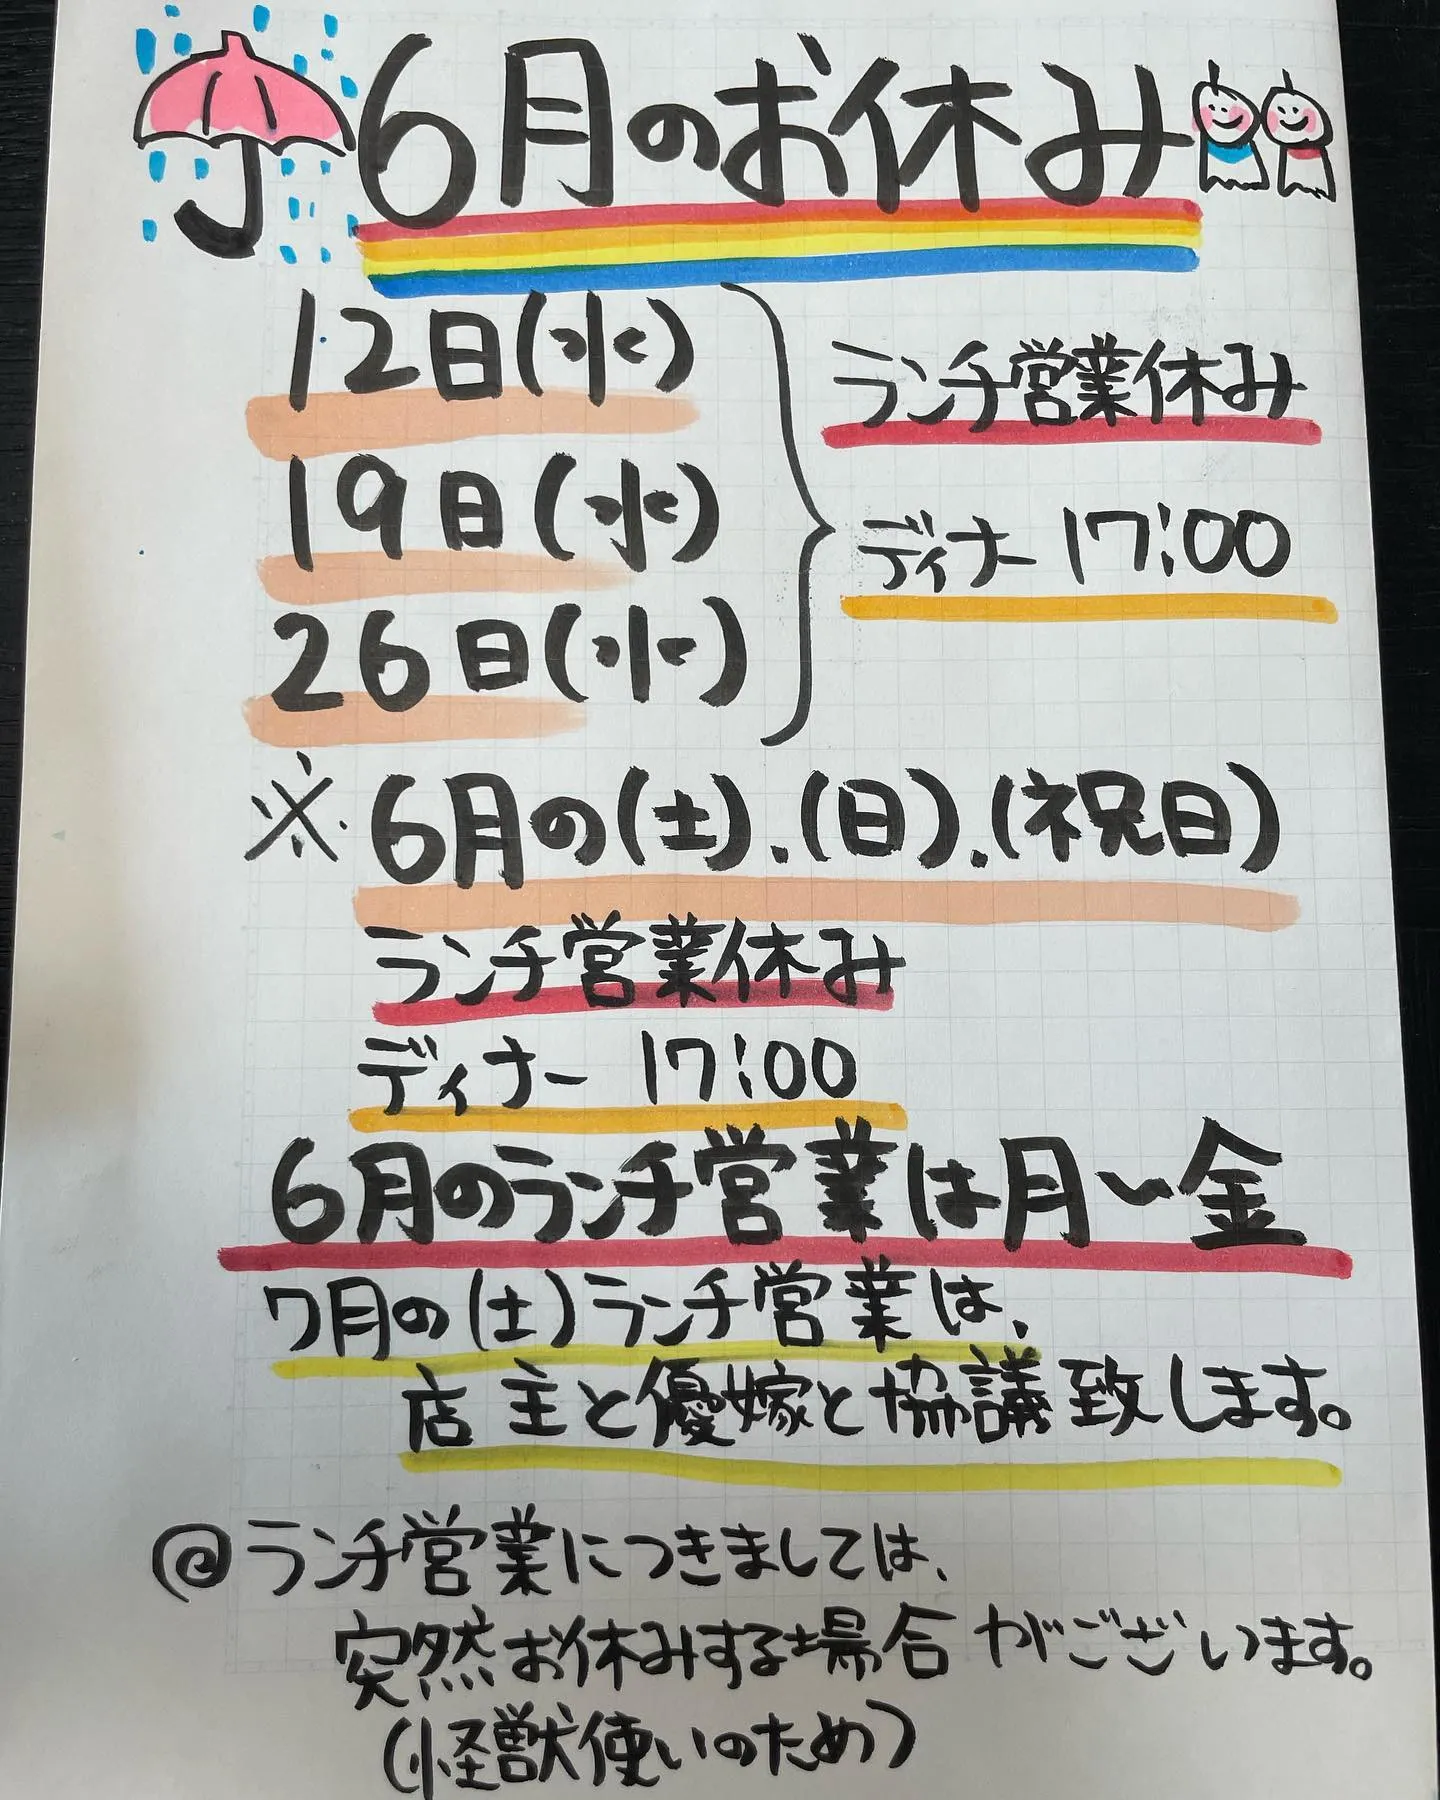 6月のお休み
12日(水)
19日(水)
26日(水)
ランチ営業休み
ディナー 17:00
※6月の(土).(日).(祝日)
ランチ営業休み
ディナー 17:00
6月のランチ営業は月～金
7月の(土)ランチ営業は、
店主と優嫁と協議致します。
@ランチ営業につきましては、
突然お休みする場合がございます。
(怪獣使いのため)